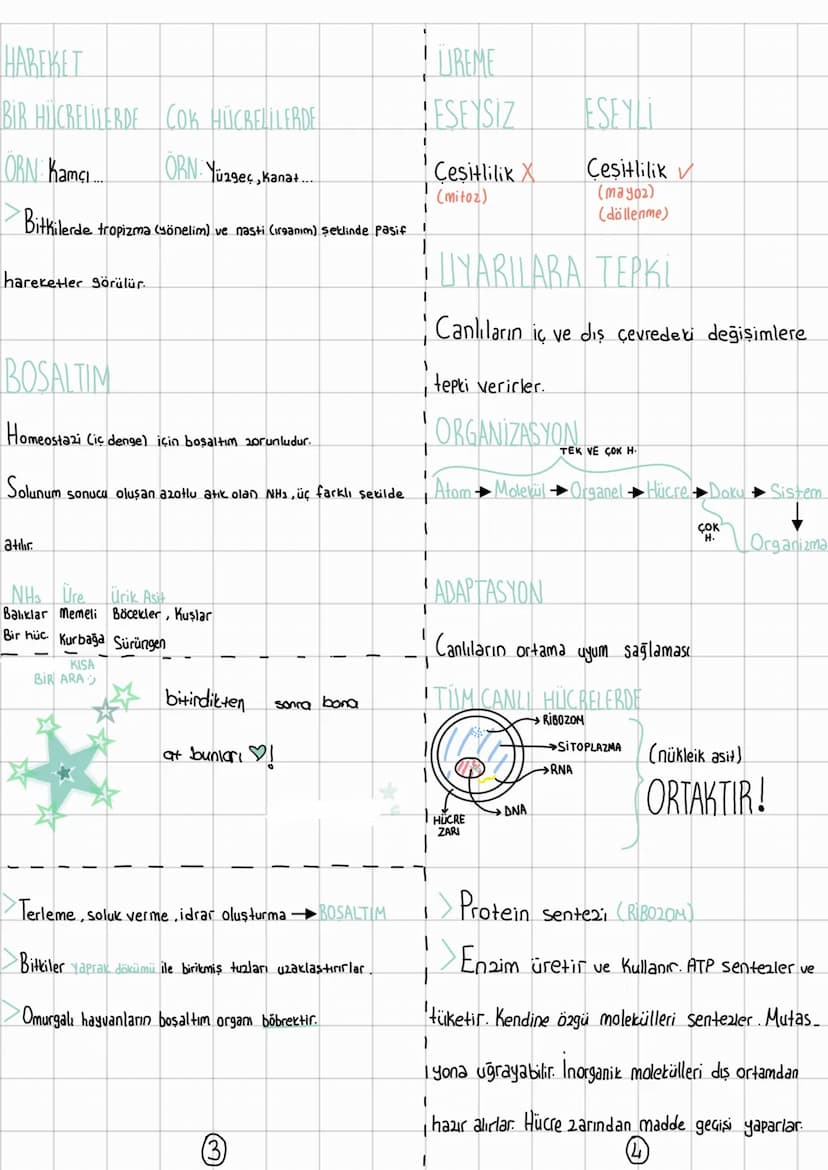 HAREKET
BİR HÜCRELİLERDE ÇOK HÜCRELİLERDE
ÖRN: Kamçı... ÖRN: Yüzgeç, kanat...
> Bitkilerde tropizma (yönelim) ve nasti (ırganım) şeklinde pasif
hareketler görülür.
BOŞALTIM
Homeostazi (iç denge) için boşaltım zorunludur.
Solunum sonucu oluşan azotlu atık olan NH₃, üç farklı şekilde
atılır.
NH₃ Üre Ürik Asit
Balıklar Memeli Böcekler, Kuşlar
Bir hüc. Kurbağa Sürüngen
KISA
BİR ARA :)
bitirdikten sonra bana
at bunları ♡!
> Terleme, soluk verme, idrar oluşturma → BOŞALTIM
> Bitkiler yaprak dökümü ile birikmiş tuzları uzaklaştırırlar.
> Omurgalı hayvanların boşaltım organı böbrektir.
3
ÜREME
EŞEYSİZ EŞEYLİ
Çeşitlilik X Çeşitlilik ✓
(mitoz) (mayoz)
(döllenme)
UYARILARA TEPKİ
Canlıların iç ve dış çevredeki değişimlere
tepki verirler.
ORGANİZASYON
TEK VE ÇOK H.
Atom → Molekül → Organel → Hücre → Doku → Sistem
ÇOK
H.
Organizma
ADAPTASYON
Canlıların ortama uyum sağlaması
TÜM CANLI HÜCRELERDE
RİBOZOM
SİTOPLAZMA
RNA
DNA
HÜCRE
ZARI
(nükleik asit)
ORTAKTIR!
> Protein sentezi (RİBOZOM)
> Enzim üretir ve kullanır. ATP sentezler ve
tüketir. Kendine özgü molekülleri sentezler. Mutas-
yona uğrayabilir. İnorganik molekülleri dış ortamdan
hazır alırlar. Hücre zarından madde geçişi yaparlar.
4